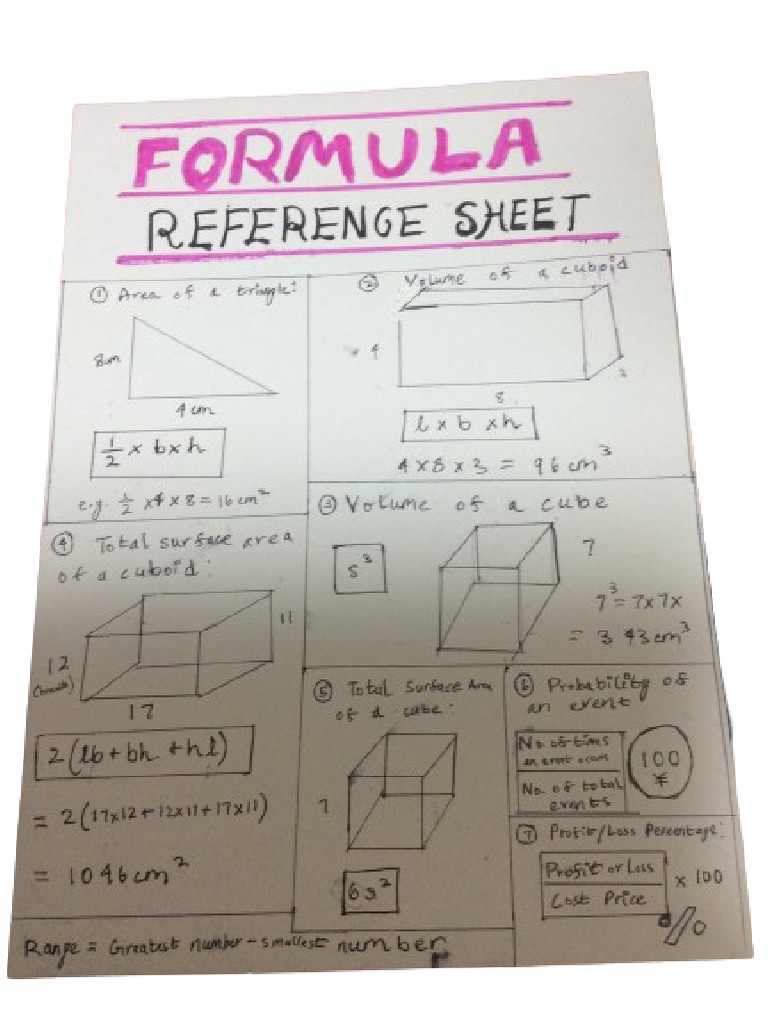 FORMULA
REFERENCE SHEET
① Area of a triangle:
8cm
4 cm
1/2 x b x h
e.g. 1/2 x 4 x 8 = 16 cm²
② Volume of a cuboid
4
8
l x b x h
4 x 8 x 3 = 96 cm³
③ Volume of a cube
s³
7
7³ = 7x7x
= 343 cm³
④ Total surface area
of a cuboid:
11
12
17
2(lb + bh + hl)
= 2(17x12 + 12x11 + 17x11)
= 1046 cm²
⑤ Total Surface Area
of a cube:
6s²
⑥ Probability of
an event
No. of times
an event occurs
No. of total
events
100
⑦ Profit/Loss Percentage:
Profit or Loss
Cost Price
x 100
%
Range = Greatest number - smallest number